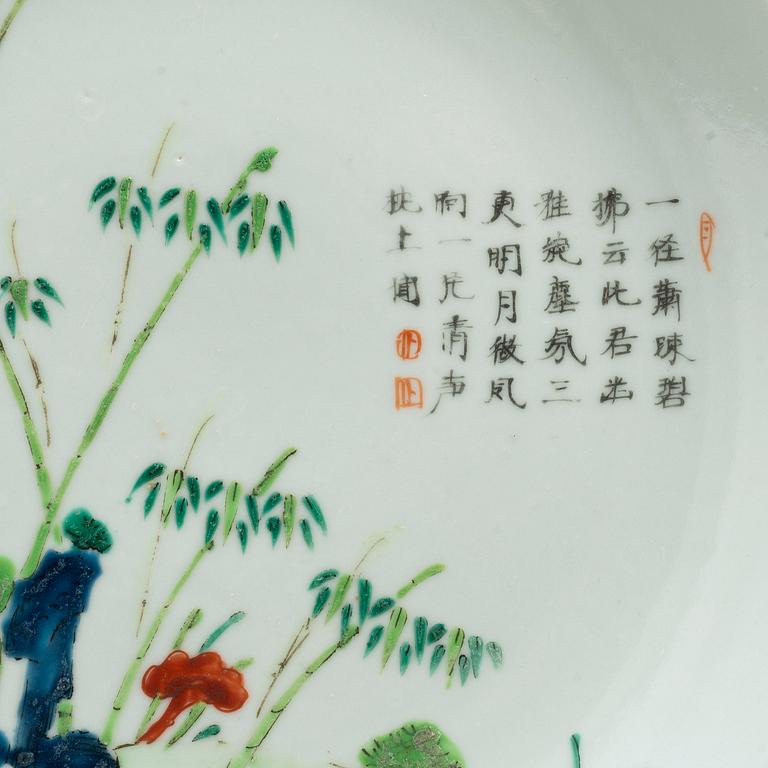 一径蕭踈碧
拂云此君幽
雅絶塵氛三
更明月微风
响一片清声
枕上闻